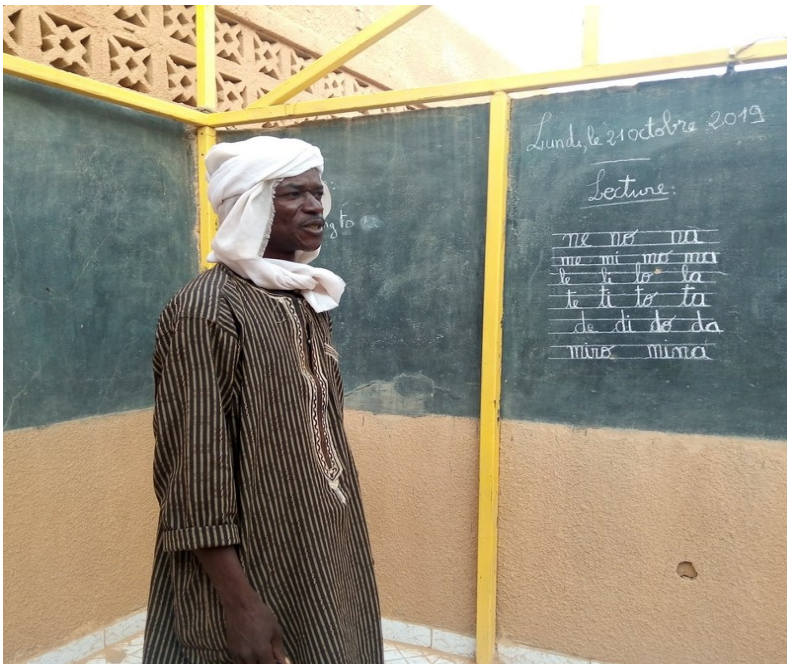 Lundi, le 21 octobre 2019
Lecture:
ne no na
me mi mo ma
le li lo la
te ti to ta
de di do da
miro mina